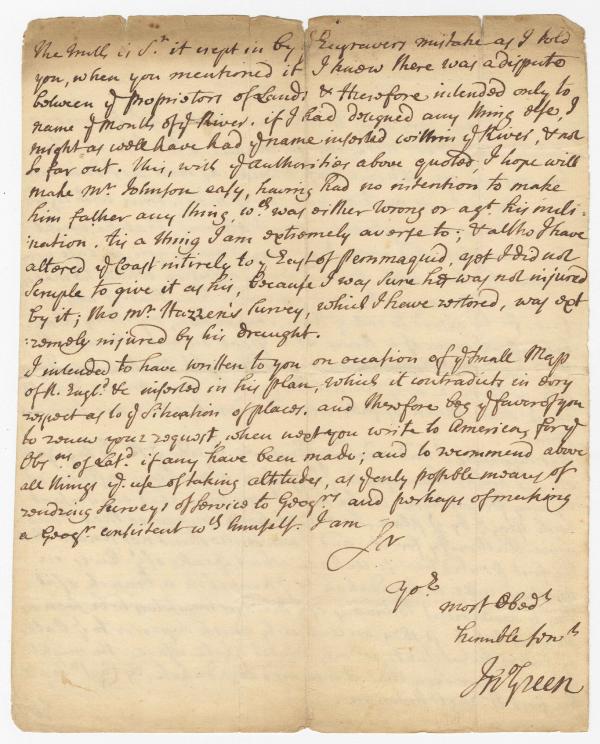 The truth is Sr. it crept in by ye Engravers mistake as I told
you, when you mentioned it I knew there was a dispute
between ye Proprietors of Lands & therefore intended only to
name ye Mouths of ye River. if I had designed any thing else, I
might as well have had ye name inserted within ye River, & not
so far out. This, with ye authorities above quoted, I hope will
make Mr Johnson easy, having had no intention to make
him father any thing, wch was either wrong or agt. his incli-
nation. tis a thing I am extremely averse to; & altho I have
altered ye Coast intirely to ye East of Pemmaquid, yet I did not
scruple to give it as his, because I was sure he was not injured
by it; tho Mr. Hazzen's Survey, which I have restored, was ext
:remely injured by his draught.
I intended to have written to you on occasion of ye Small Map
of N. Engld. &c inserted in his plan, which it contradicts in evry
respect as to ye Situation of places. and therefore beg ye favor of you
to renew your request, when next you write to America, for ye
Obsns of Latd. if any have been made; and to recommend above
all things ye use of taking altitudes, as ye only possible means of
rendring Surveys of Service to Geogrs and perhaps of making
a Geogr. consistent wth himself. I am
Sr
Yor.
most Obedt
humble Servt
Jno Green